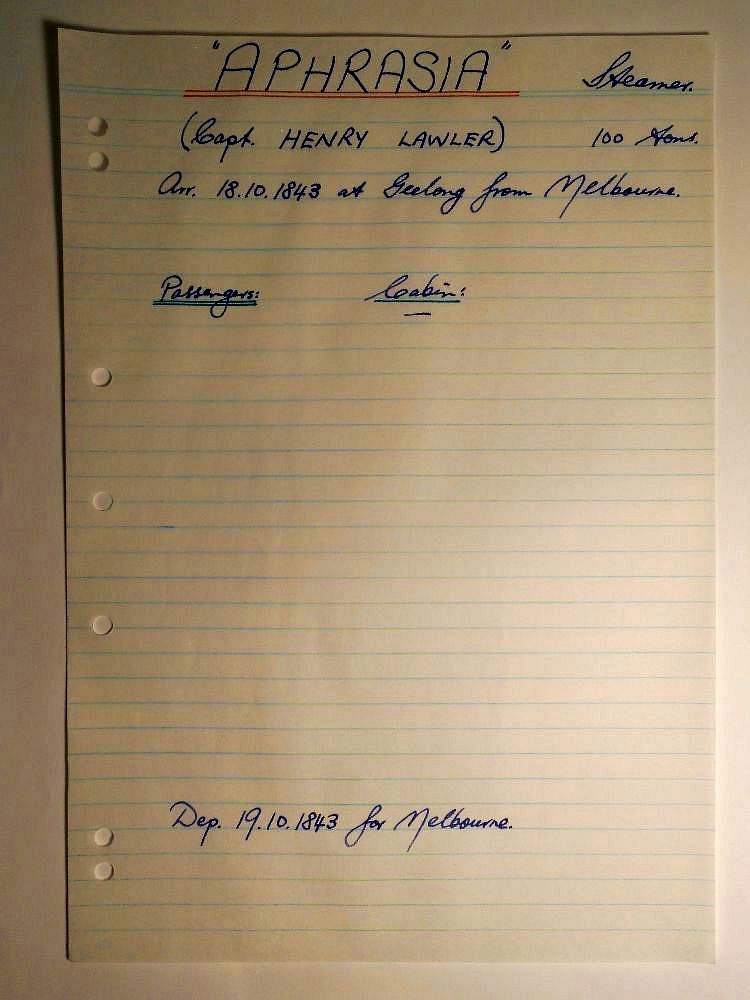 "APHRASIA" Steamer.
(Capt. HENRY LAWLER) 100 Tons.
Arr. 18.10.1843 at Geelong from Melbourne.
Passengers: Cabin:
—
Dep. 19.10.1843 for Melbourne.